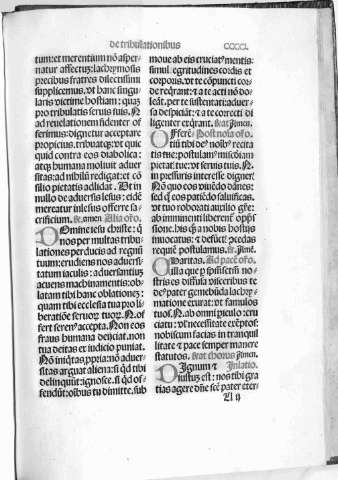 de tribulationibus
CCCCI.
tum: et merentium nõ asper-
natur affectuʒ: lachrymosis
precibus fratres dilectissimi
supplicemus. vt hanc singu-
laris victime hostiam: quaʒ
pro tribulatis seruis suis. N
ad reuelationem fidenter of
ferimus: dignetur acceptare
propicius. tribuatqʒ: vt quic
quid contra eos diabolica:
atqʒ humana moliuit aduer
sitas: ad nihilũ redigat: et cõ
silio pietatis adlidat. Ut in
nullo de aduersis lesus: eidẽ
mercatur inlesus offerre sa-
crificium. amen Alia oro.
Domine iesu christe: q̃
nos per multas tribu
lationes perducis ad regnũ
tuum: erudiens nos aduersi-
tatum iaculis: aduersantiuʒ
acueus machinamentis: ob-
latam tibi hanc oblationeʒ:
quam tibi ecclesia tua pro li-
beratiõe seruoʒ tuoʒ. N. of
fert serenʒ accepta. Non eos
fraus humana deijciat. non
tua deitas et iudicio puniat.
Nõ iniqtas ppria: nõ aduer-
sitas arguat aliena: si qd tibi
delinquũt: ignosce. si qd of-
fendũt: oibus tu dimitte. sub
moue ab eis cruciatʒ mentis:
simul egritudines cordis et
corporis. vt te cõpuncti cor-
de reqrant: vt a te acti nõ do-
leãt. per te sustentati: aduer-
sa despiciãt: vt a te correcti di
ligenter exqrant. Amen.
Offerẽ Post noia oro.
tiũ tibi deʒ nosʒ recita
tis tue: postulamʒ miserãm
pietatʒ tue: vt seruis tuis. N.
in pressuris interesse digneʒ
Nõ quo eos viuẽdo dãnes:
sed q̃ eos patiẽdo saluifices.
vt tuo roborati auxilio: gñe-
ab imminenti liberent oppsi
sione. his q̃ a nobis hostijs
inuocatus: et defuctʒ pcedas
requiẽ postulamus. Amẽ.
Caritas. Ad pacẽ oro.
illa que p ipsissimũ no-
stris es diffusa visceribus te
deʒpater gemebũda lachry-
matione exurat: vt famulos
tuosʒ. N. ab omni piculo: cru
ciatu: vt necessitate exeptosʒ
nobiscum facias in tranquil
litate et pace semper manere
statutos. chorus Amen.
Dignum et Inlatio.
iustuʒ est: nos tibi gra
tias agere dñe scẽ pater eter-
Ll ij